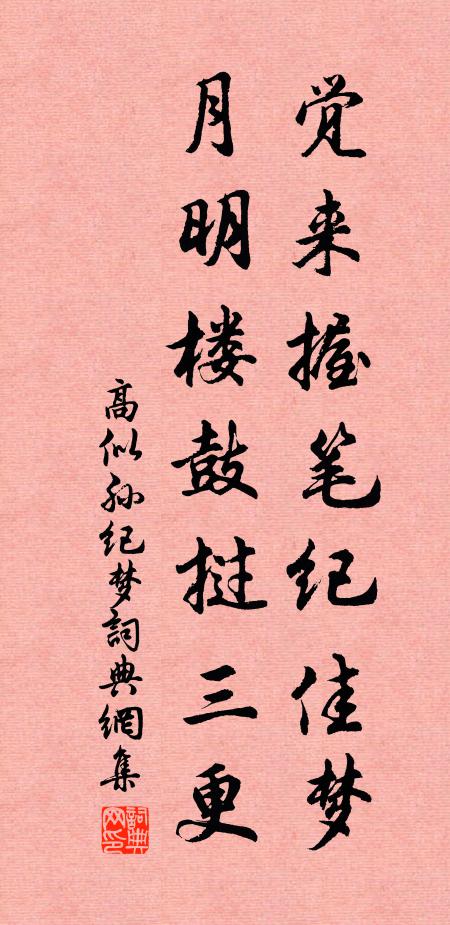 觉来握笔纪佳梦
月明楼鼓挝三更
高似孙纪梦詞典網集
詞典网印